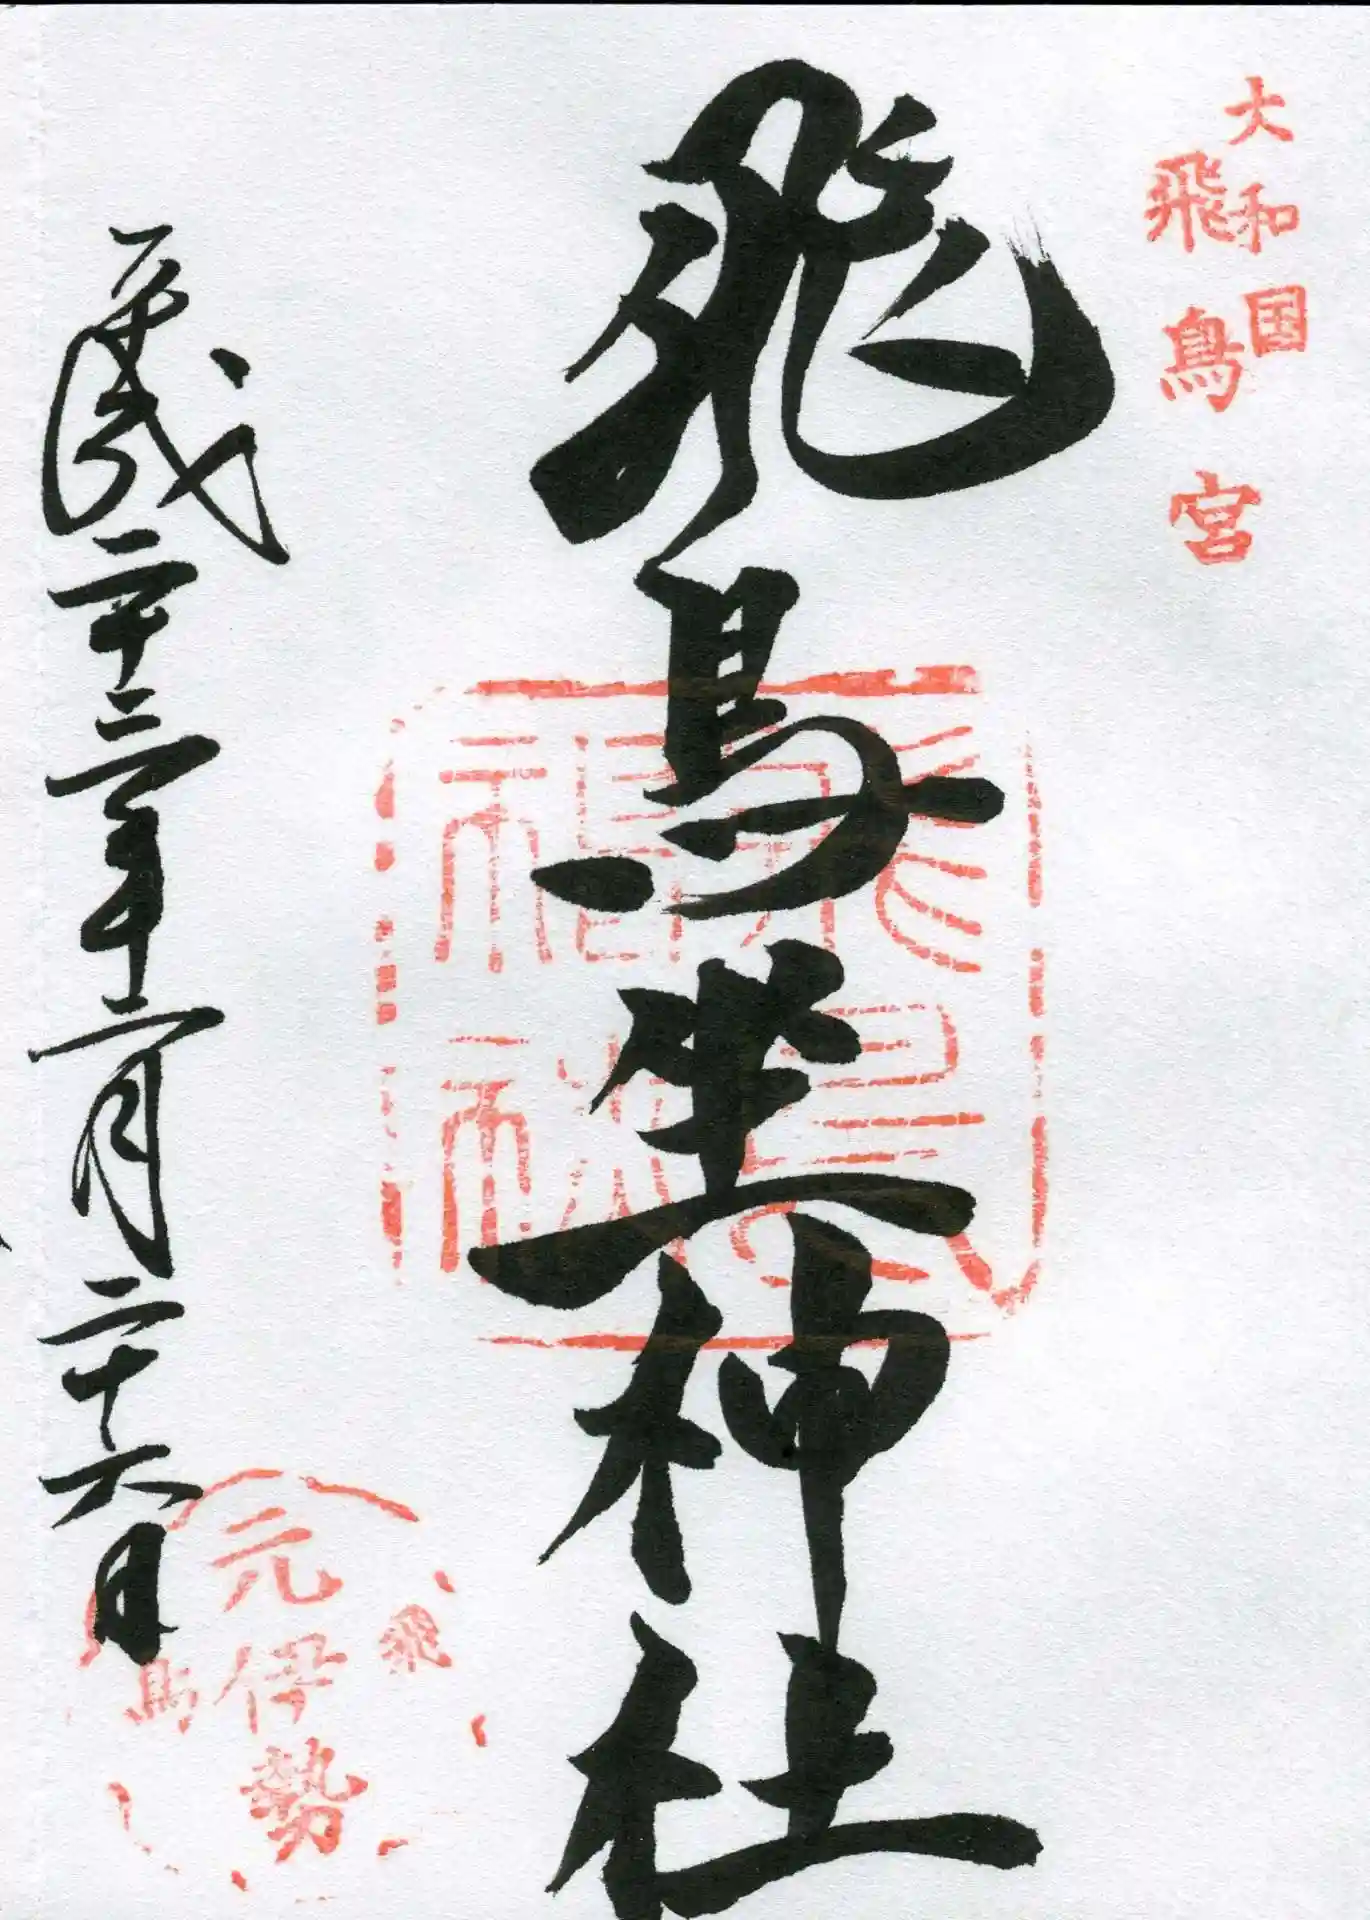 大和国
飛鳥宮
飛鳥坐神社
平成二十三年十二月二十六日
飛
元伊勢
鳥